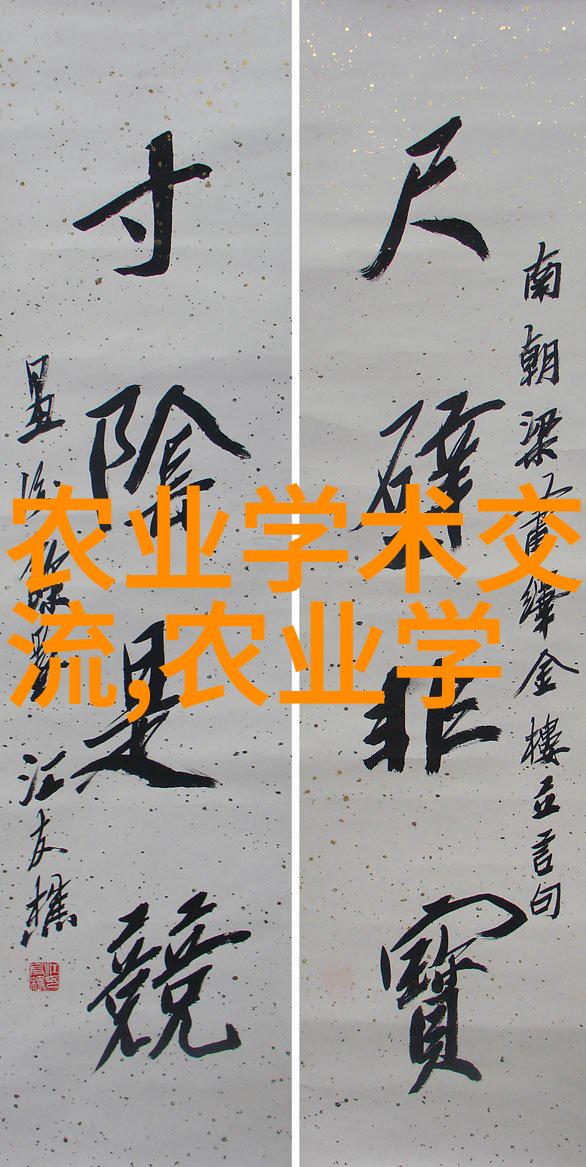 农业学术交
流,农业学
南朝梁蕭繹金樓立言句
尺璧非寶
寸陰是競
江友樵